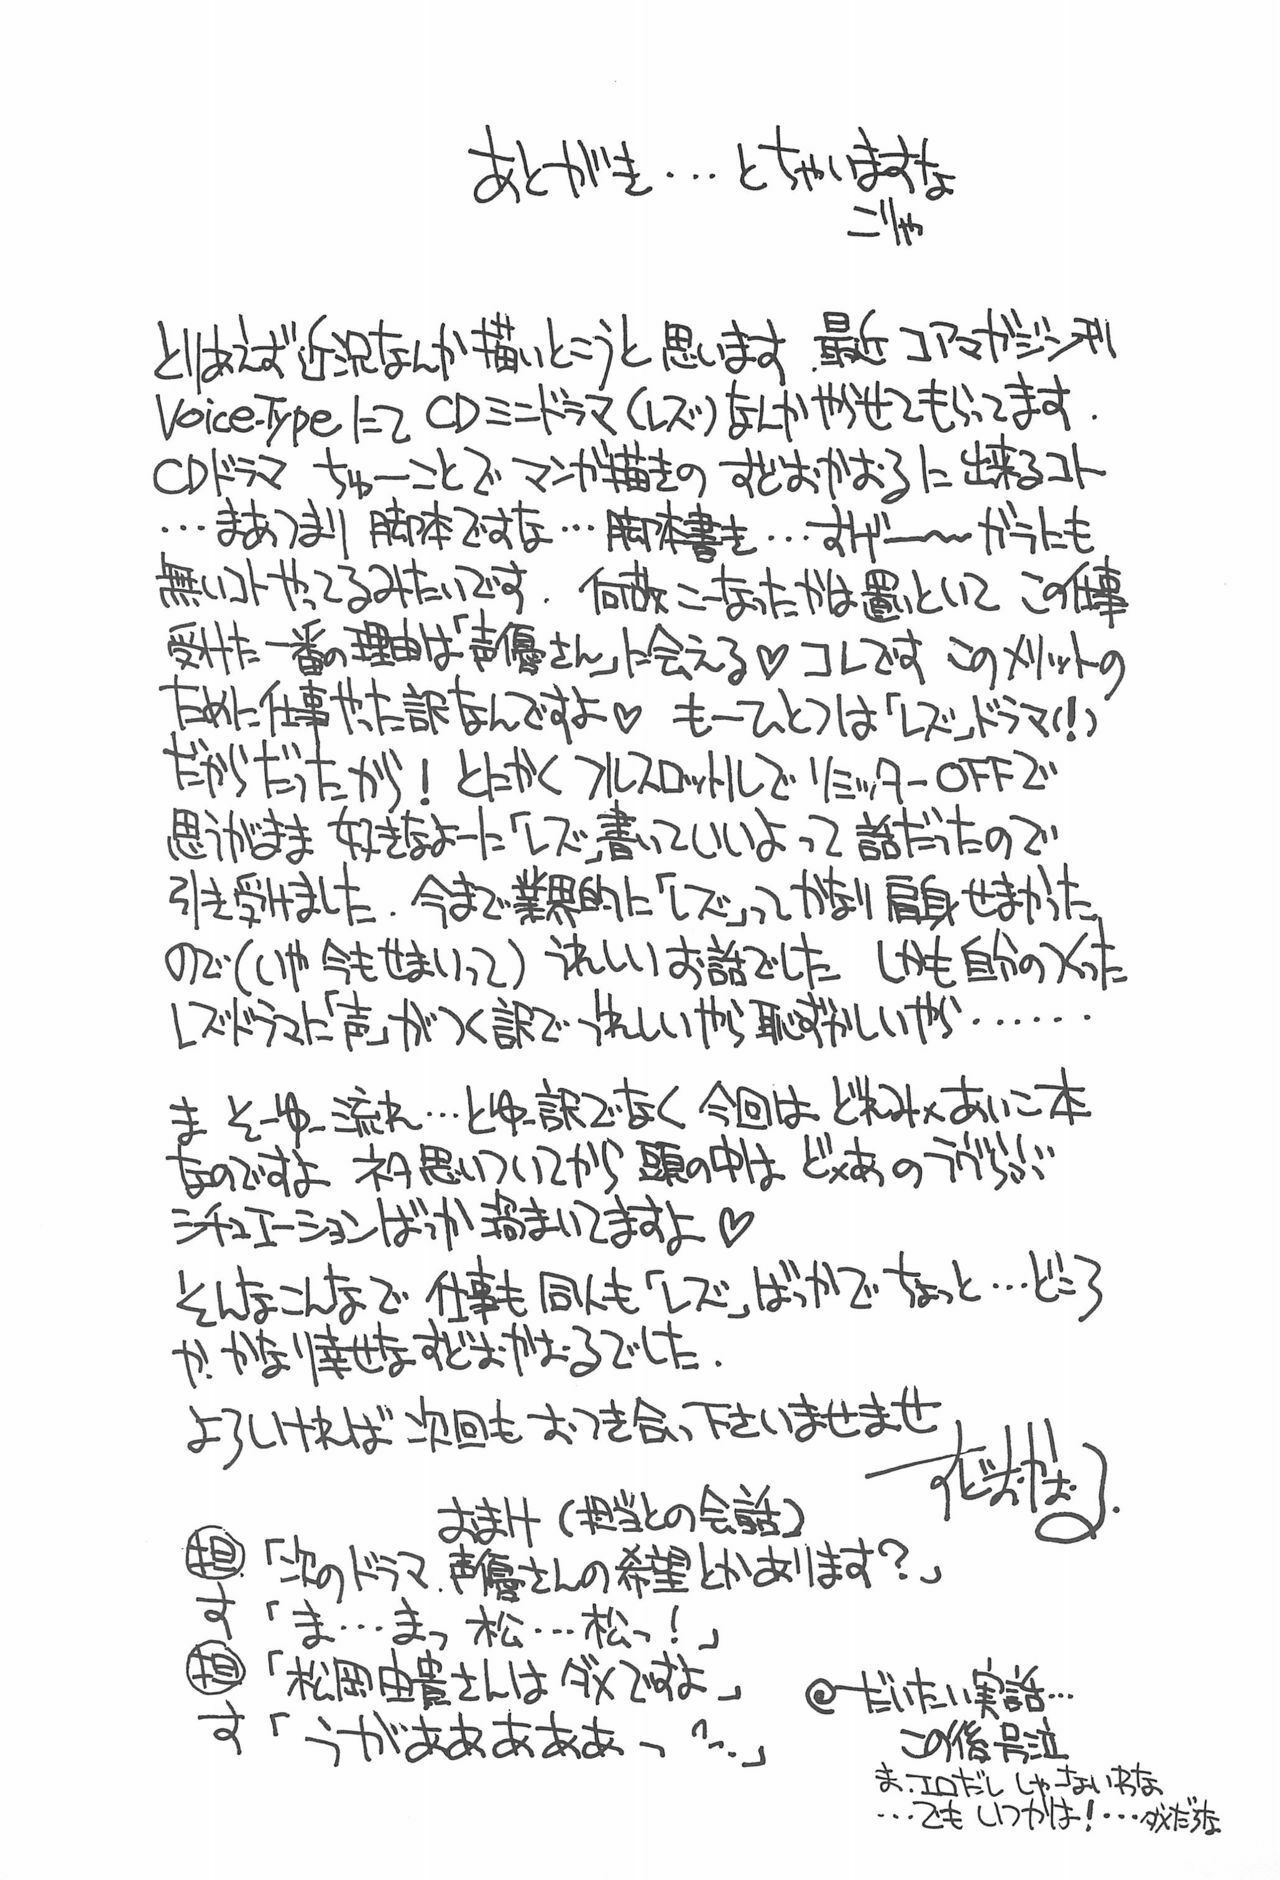 あとがき・・・とちゃいますなこりゃ
とりあえず近況なんか描いとこうと思います．最近コアマガジン刊
Voice-Typeにて CDミニドラマ（レズ）なんかやらせてもらってます．
CDドラマ ちゅーことで マンガ描きの すどおかおるに 出来るコト
・・・まあつまり 脚本ですな・・・脚本書き・・・すげー〜 ガラにも
無いコトやってるみたいです． 何故こーなったかは置いといて この仕事
受けた一番の理由は「声優さん」に会える♡ コレです このメリットの
ために仕事やった訳なんですよ♡ もーひとつは「レズ」ドラマ（！）
だからだったから！ とにかく フルスロットルで リミッターOFFで
思うがまま 好きなよーに「レズ」書いていいよって 話だったので
引き受けました．今まで業界的に「レズ」ってかなり肩身せまかった
ので（いや今もせまいって）うれしいお話でした しかも自分のつくった
レズドラマに「声」がつく訳で うれしいやら恥ずかしいやら・・・・・・
ま そーゆー流れ・・・とゆー訳でなく 今回は どれみ×あいこ本
なのですよ ネタ思いついてから 頭の中は ど×あのラヴらぶ
シチュエーションばっか渦まいてますよ♡
そんなこんなで 仕事も同人も「レズ」ばっかで ちょっと・・・どころ
か．かなり幸せなすどおかおるでした．
よろしければ 次回も おつき合い下さいませませ
すどおかおる．
おまけ（担当との会話）
担「次のドラマ．声優さんの希望とかあります？」
す「ま・・・まっ 松・・・松っ！」
担「松岡由貴さんは ダメですよ」
す「うがああああぁっ」
@だいたい実話・・・
この後号泣
ま．エロだし しゃーないわな
・・・でも いつかは！・・・ダメだろな